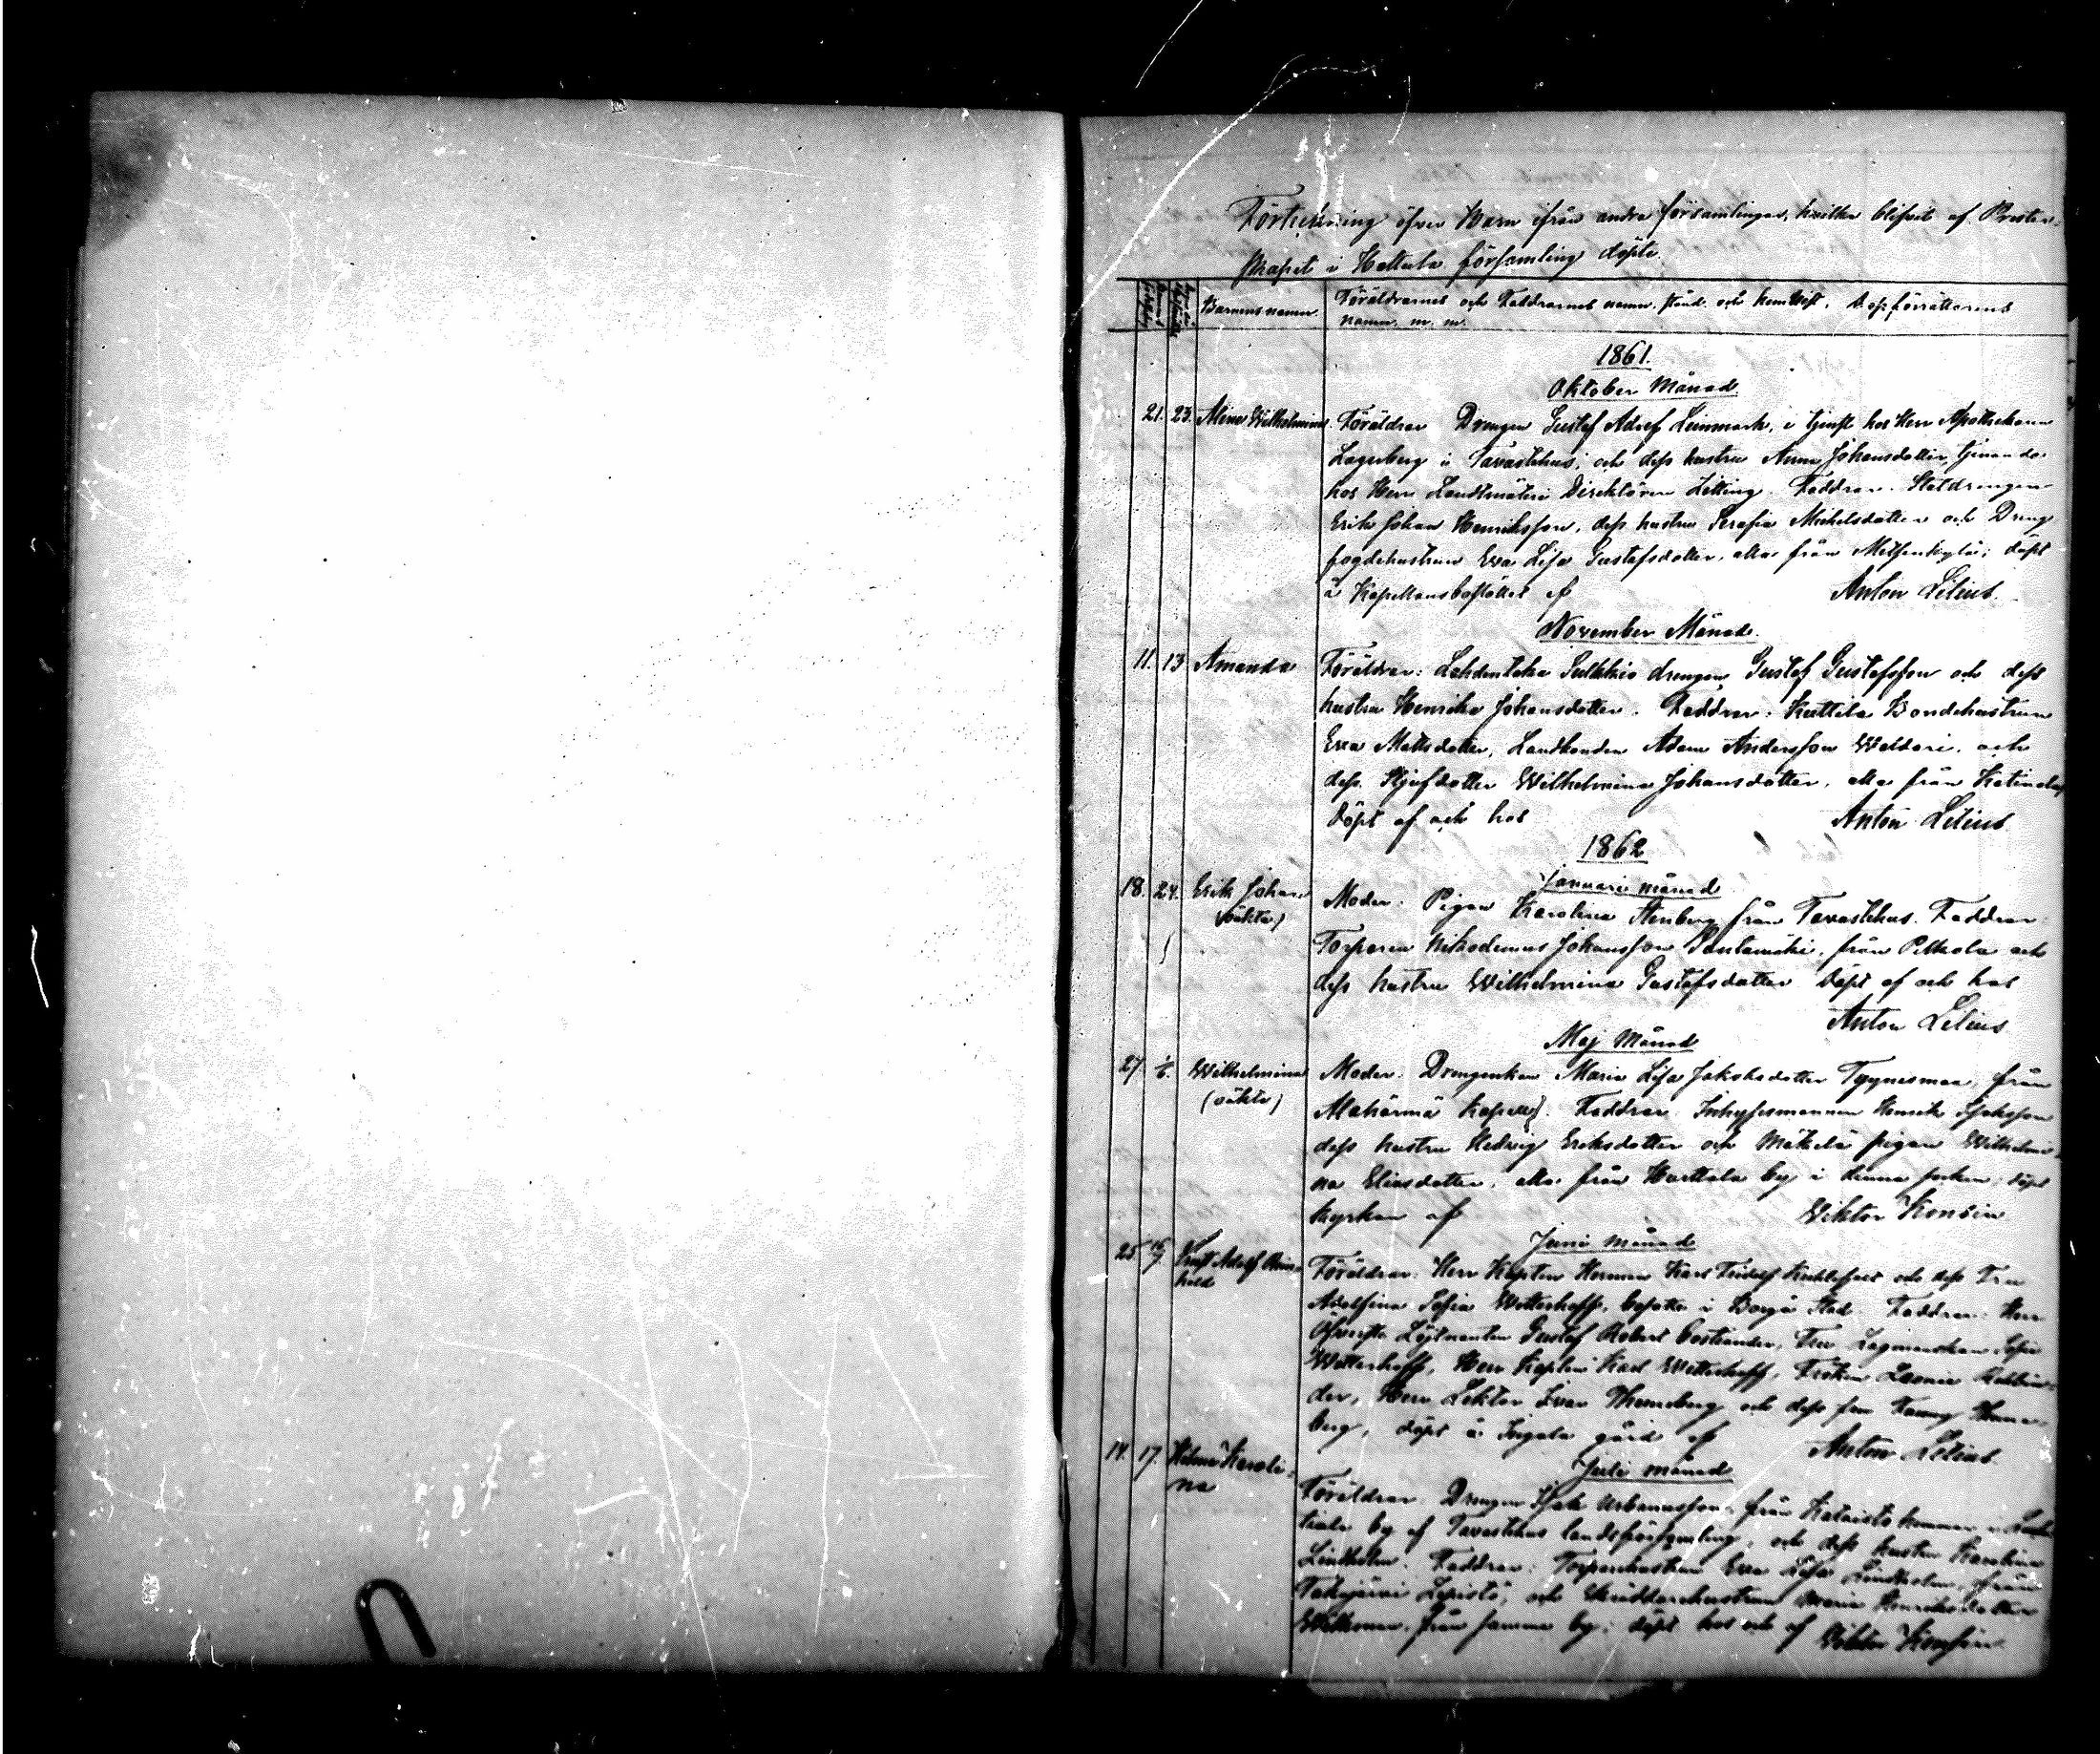 Förteckning öfver Barn ifrån andra församlingar, hvilka blifvit af Prester-
skapet i Hattula församling döpte.
Barnens namn. Föräldrarnes och Faddrarnes namn, stånd och hemvist. Dopförrättarens
namn. m. m.
1861.
Oktober Månad.
21. 23. Alina Wilhelmina. Föräldrar Drengen Gustaf Adolf Leinmark, i tjenst hos Herr Apothekaren
Lagerberg i Tavastehus, och dess hustru Anna Johansdotter, tjenande
hos Herr Landtmäteri Direktören Zitting. Faddrar. Statdrengen
Erik Johan Henriksson, dess hustru Serafia Mickelsdotter och Dreng
fogdehustrun Eva Lisa Gustafsdotter, alla från Metsenkylä; döpt
å Kapellansbostället af Anton Lilius.
November Månad.
11. 13 Amanda Föräldrar: Lahdentaka drengen Gustaf Gustafsson och dess
hustru Henrika Johansdotter. Faddrar: Kuttila Bondehustrun
Eva Mattsdotter, Landbonden Adam Andersson Waldari, och
dess Styfdotter Wilhelmina Johansdotter, alla från Katinala,
döpt af och hos Anton Lilius
1862
Januari månad
18. 24. Erik Johan Moder: Pigan Karolina Stenberg från Tavastehus. Faddrar
(oäkta) Torparen Nikodemus Johansson från Pelkola och
dess hustru Wilhelmina Gustafsdotter Döpt af och hos
Anton Lilius
Maj Månad
27 1/6. Wilhelmina Moder: Drengenkan Maria Lisa Jakobsdotter Tyynesmaa, från
(oäkta) Alahärmä Kapell. Faddrar Inhysesmannen Henrik Isaksson
dess hustru Hedvig Eriksdotter och Mäkelä pigan Wilhelmi-
na Eliasdotter, alla från Hurttala by i denna socken; döpt
kyrkan af Viktor Konsin
Juni månad
25 15/7 Ernst Adolf Rein- Föräldrar: Herr Kapten Herman Karl och dess Fru
hold Adolfina Sofia Wetterhoff, bosatta i Borgå Stad. Faddrar: Herr
Öfverste Löjtnanten Gustaf Robert Costiander, Fru Lagmanskan Sofia
Wetterhoff, Herr Kapten Karl Wetterhoff, Fröken
der, Herr Lektor Ivar Thuneberg och dess fru Fanny Thune-
berg, döpt å Ingala gård af Anton Lilius
Juli månad
14. 17. Hilma Karoli- Föräldrar. Drengen Isak Urbanusson från Kataisto hemman i
na by af Tavastehus landsförsamling, och dess hustru Karolina
Lindholm. Faddrar: Torparehustrun Eva Lisa Lindholm, från
Takajärvi Lepistö, och Skräddarehustrun Maria Henriksdotter
från samma by; döpt hos och af Viktor Konsin